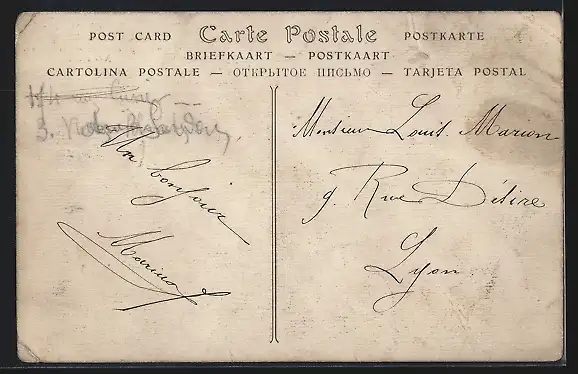 POST CARD Carte Postale POSTKARTE
BRIEFKAART — POSTKAART
CARTOLINA POSTALE — ОТКРЫТОЕ ПИСЬМО — TARJETA POSTAL
3.
Un bonjour
Marino
Monsieur Louis Marion
9. Rue Désiré
Lyon